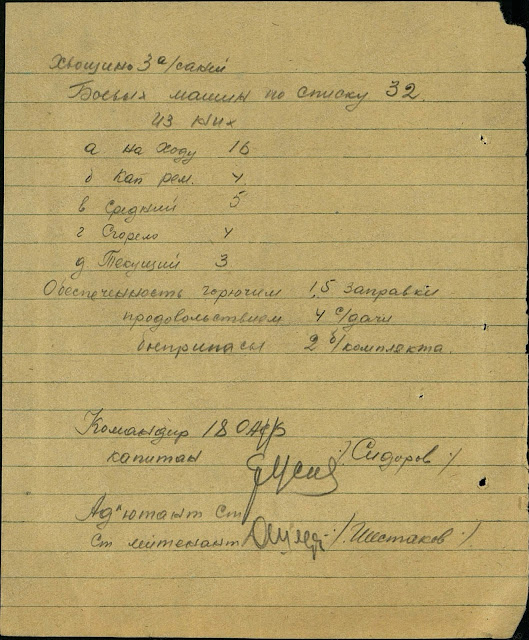 Хвощино 3 а/саней
Боевых машин по списку 32.
из них
а на ходу 16
б Кап рем. 4
в Средний 5
г Сгорело 4
д Текущий 3
Обеспеченность горючим 1,5 заправки
продовольствием 4 с/дачи
боеприпасы 2 б/комплекта.
Командир 18
капитан /Сидоров/
Ад"ютант Ст
Ст лейтенант /Шестаков/